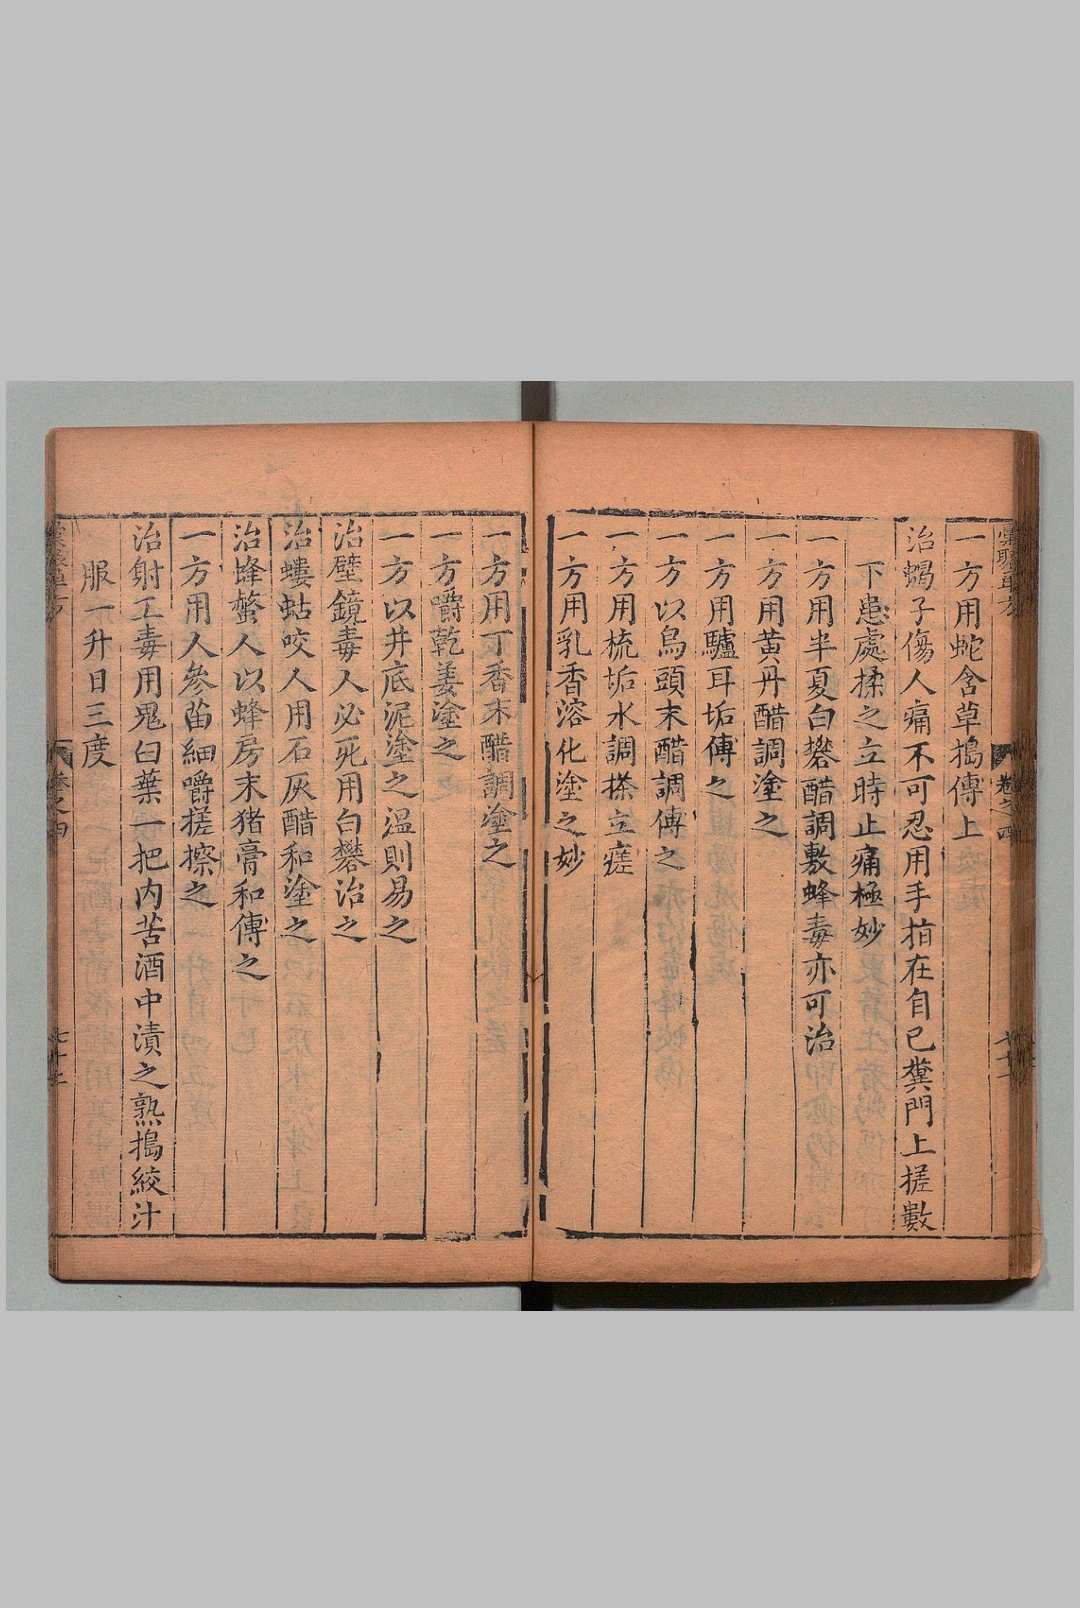 一方用蛇含草搗傅上
治蝎子傷人痛不可忍用手指在自己糞門上搓數
下患處揉之立時止痛極妙
一方用半夏白礬醋調敷蜂毒亦可治
一方用黃丹醋調塗之
一方用驢耳垢傅之
一方以烏頭末醋調傅之
一方用梳垢水調搽立瘥
一方用乳香溶化塗之妙
一方用丁香末醋調塗之
一方嚼乾姜塗之
一方以井底泥塗之温則易之
治壁鏡毒人必死用白礬治之
治螻蛄咬人用石灰醋和塗之
治蜂螫人以蜂房末猪膏和傅之
一方用人參苗細嚼搓擦之
治射工毒用鬼臼葉一把内苦酒中漬之熟搗絞汁
服一升日三度
卷之四